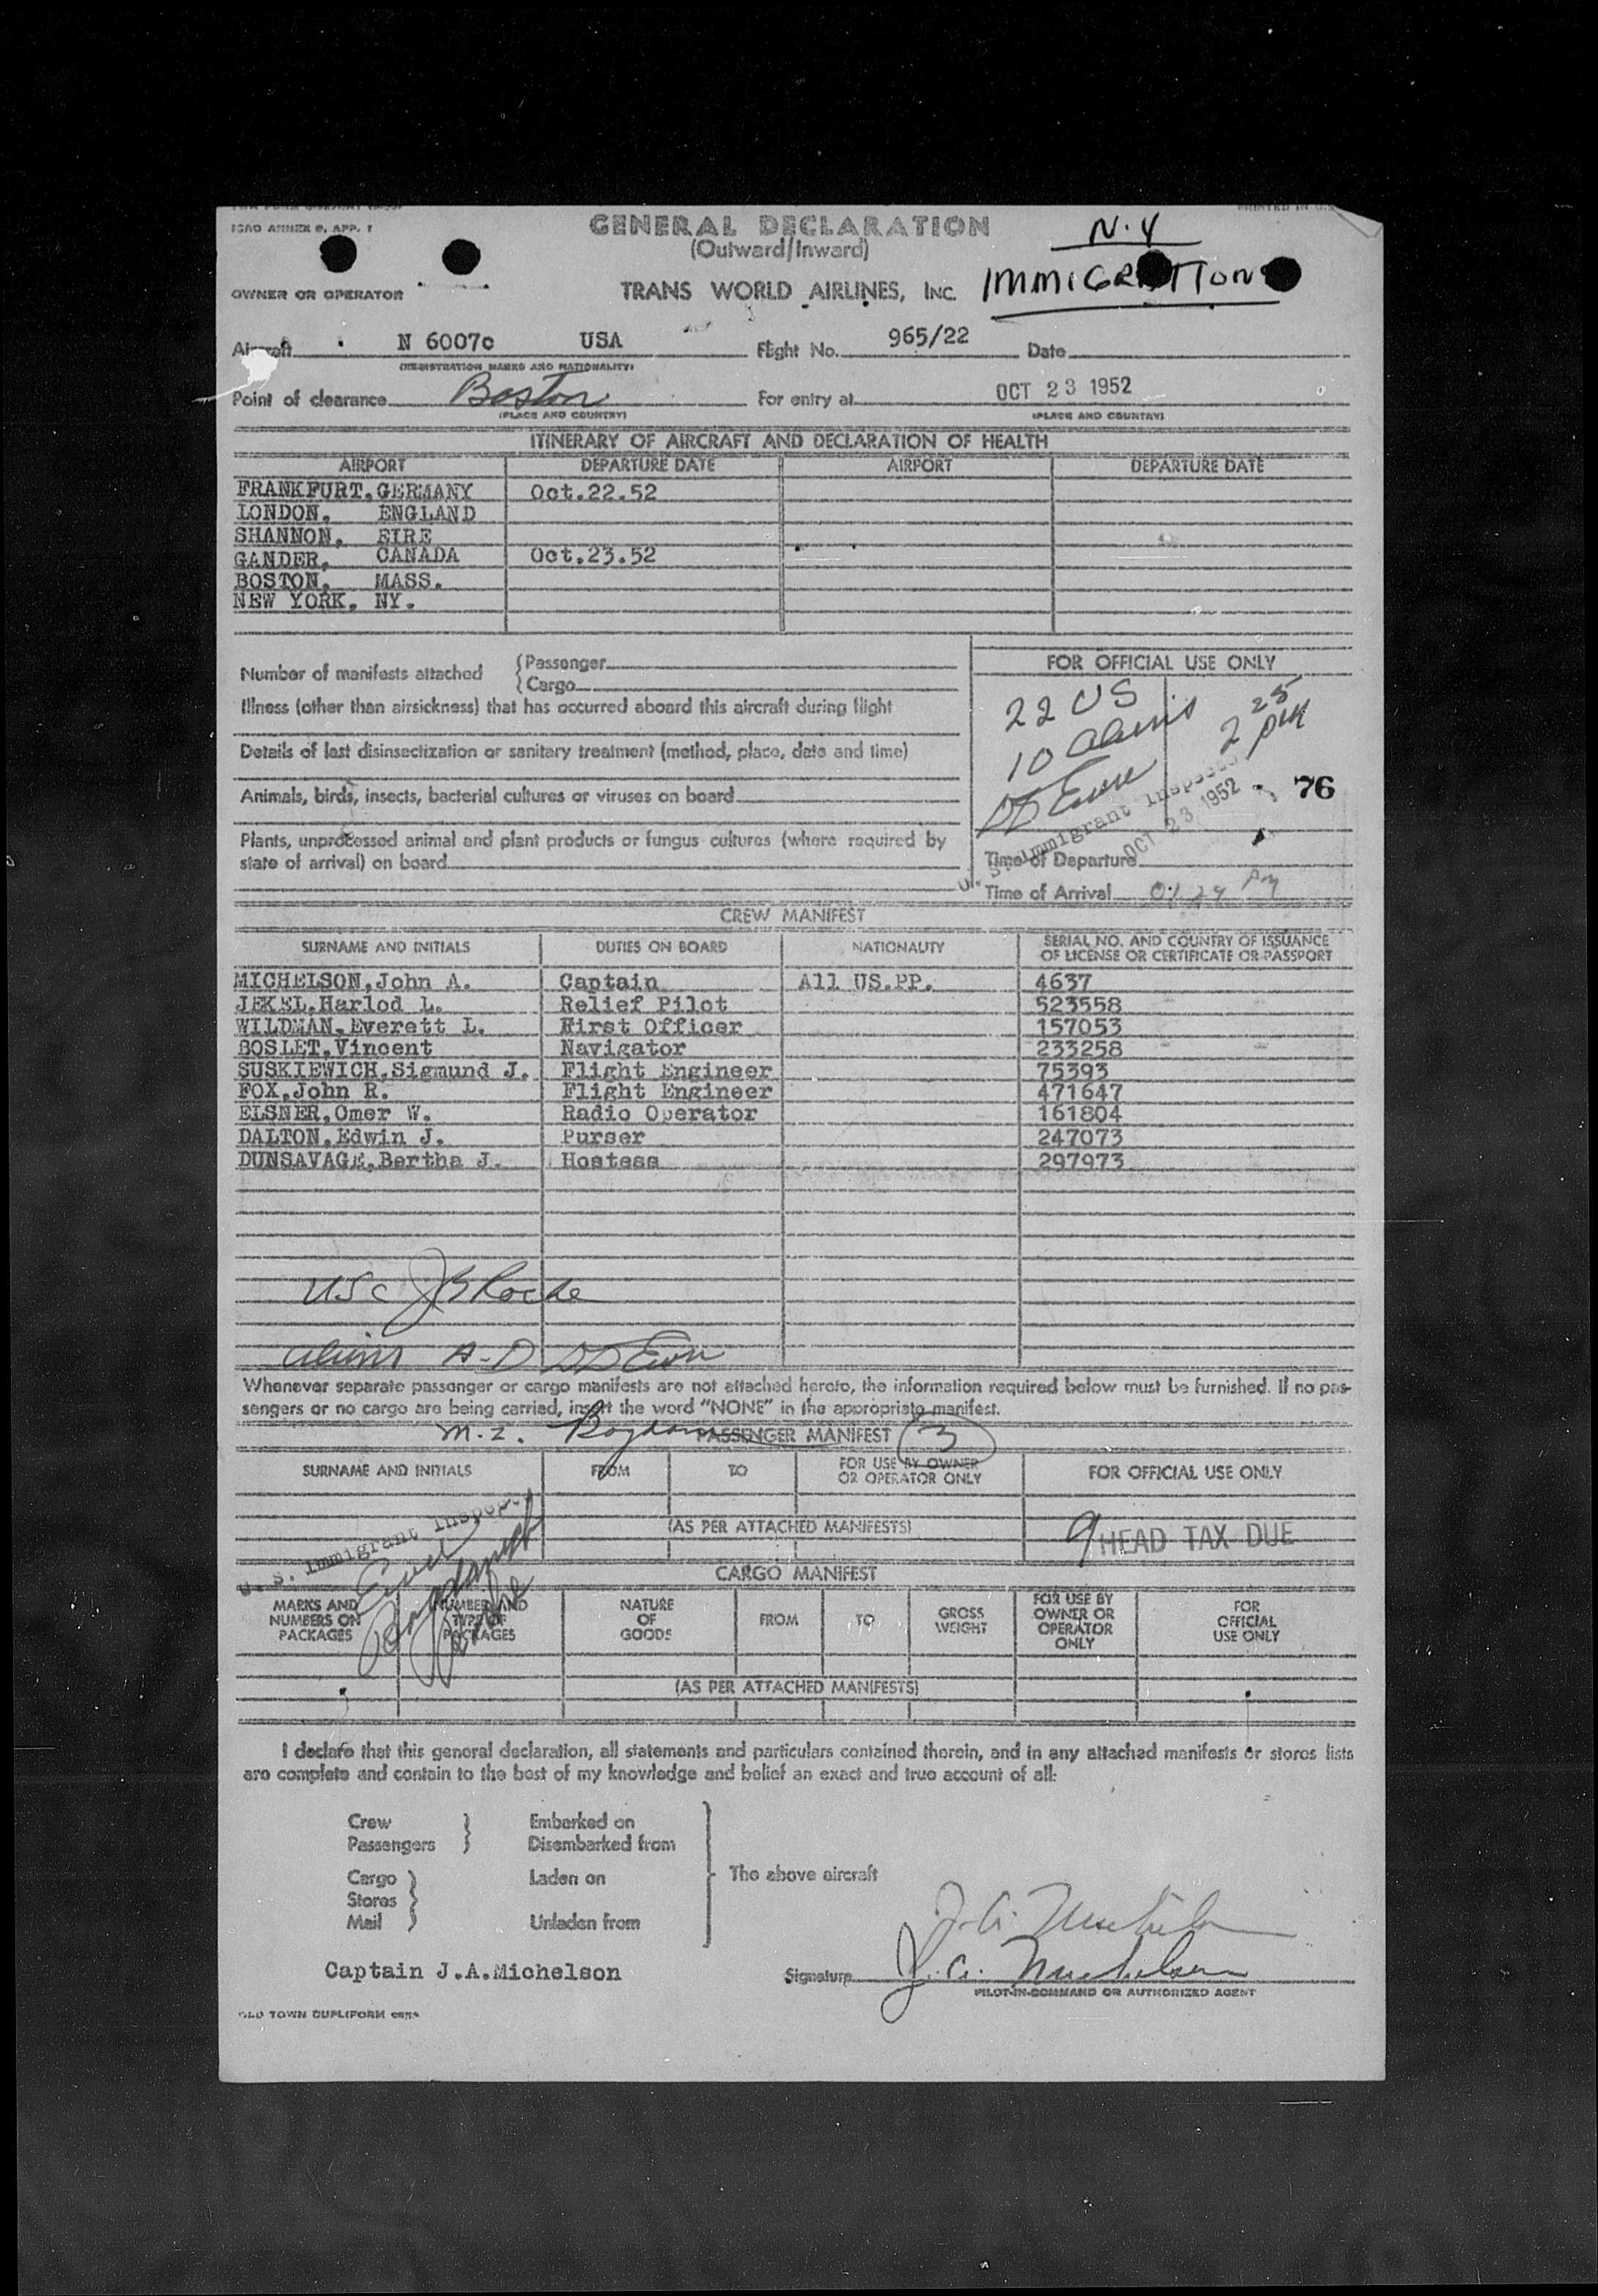 ICAO ANNEX 9, APP. 1
GENERAL DECLARATION
(Outward/Inward)
N.Y
IMMIGRATION
OWNER OR OPERATOR
TRANS WORLD AIRLINES, INC.
Aircraft N 6007c USA Flight No. 965/22 Date
(REGISTRATION MARKS AND NATIONALITY)
Point of clearance Boston For entry at OCT 23 1952
(PLACE AND COUNTRY) (PLACE AND COUNTRY)
ITINERARY OF AIRCRAFT AND DECLARATION OF HEALTH
AIRPORT DEPARTURE DATE AIRPORT DEPARTURE DATE
FRANKFURT, GERMANY Oct.22.52
LONDON, ENGLAND
SHANNON, EIRE
GANDER, CANADA Oct.23.52
BOSTON, MASS.
NEW YORK, NY.
Number of manifests attached {Passenger
{Cargo
Illness (other than airsickness) that has occurred aboard this aircraft during flight
Details of last disinsectization or sanitary treatment (method, place, date and time)
Animals, birds, insects, bacterial cultures or viruses on board
Plants, unprocessed animal and plant products or fungus cultures (where required by
state of arrival) on board
FOR OFFICIAL USE ONLY
22 US
10 aliens
2 25 PM
U. S. Immigrant Inspector
OCT 23 1952
76
Time of Departure
Time of Arrival 01.24 PM
CREW MANIFEST
SURNAME AND INITIALS DUTIES ON BOARD NATIONALITY SERIAL NO. AND COUNTRY OF ISSUANCE
OF LICENSE OR CERTIFICATE OR PASSPORT
MICHELSON,John A. Captain All US.PP. 4637
JEKEL,Harlod L. Relief Pilot 523558
WILDMAN,Everett L. First Officer 157053
BOSLET,Vincent Navigator 233258
SUSKIEWICH,Sigmund J. Flight Engineer 75393
FOX,John R. Flight Engineer 471647
ELSNER,Omer W. Radio Operator 161804
DALTON,Edwin J. Purser 247073
DUNSAVAGE,Bertha J. Hostess 297973
USC JB Roche
aliens A-D
Whenever separate passenger or cargo manifests are not attached hereto, the information required below must be furnished. If no pas-
sengers or no cargo are being carried, insert the word "NONE" in the appropriate manifest.
M-Z.
PASSENGER MANIFEST 3
SURNAME AND INITIALS FROM TO FOR USE BY OWNER
OR OPERATOR ONLY FOR OFFICIAL USE ONLY
(AS PER ATTACHED MANIFESTS)
9 HEAD TAX DUE
U. S. Immigrant Inspector
CARGO MANIFEST
MARKS AND
NUMBERS ON
PACKAGES
NUMBER AND
TYPE OF
PACKAGES
NATURE
OF
GOODS
FROM
TO
GROSS
WEIGHT
FOR USE BY
OWNER OR
OPERATOR
ONLY
FOR
OFFICIAL
USE ONLY
(AS PER ATTACHED MANIFESTS)
I declare that this general declaration, all statements and particulars contained therein, and in any attached manifests or stores lists
are complete and contain to the best of my knowledge and belief an exact and true account of all:
Crew } Embarked on
Passengers } Disembarked from
Cargo } Laden on
Stores }
Mail } Unladen from
The above aircraft
J. A. Michelson
Captain J.A.Michelson Signature J. A. Michelson
PILOT-IN-COMMAND OR AUTHORIZED AGENT
OLD TOWN DUPLIFORM